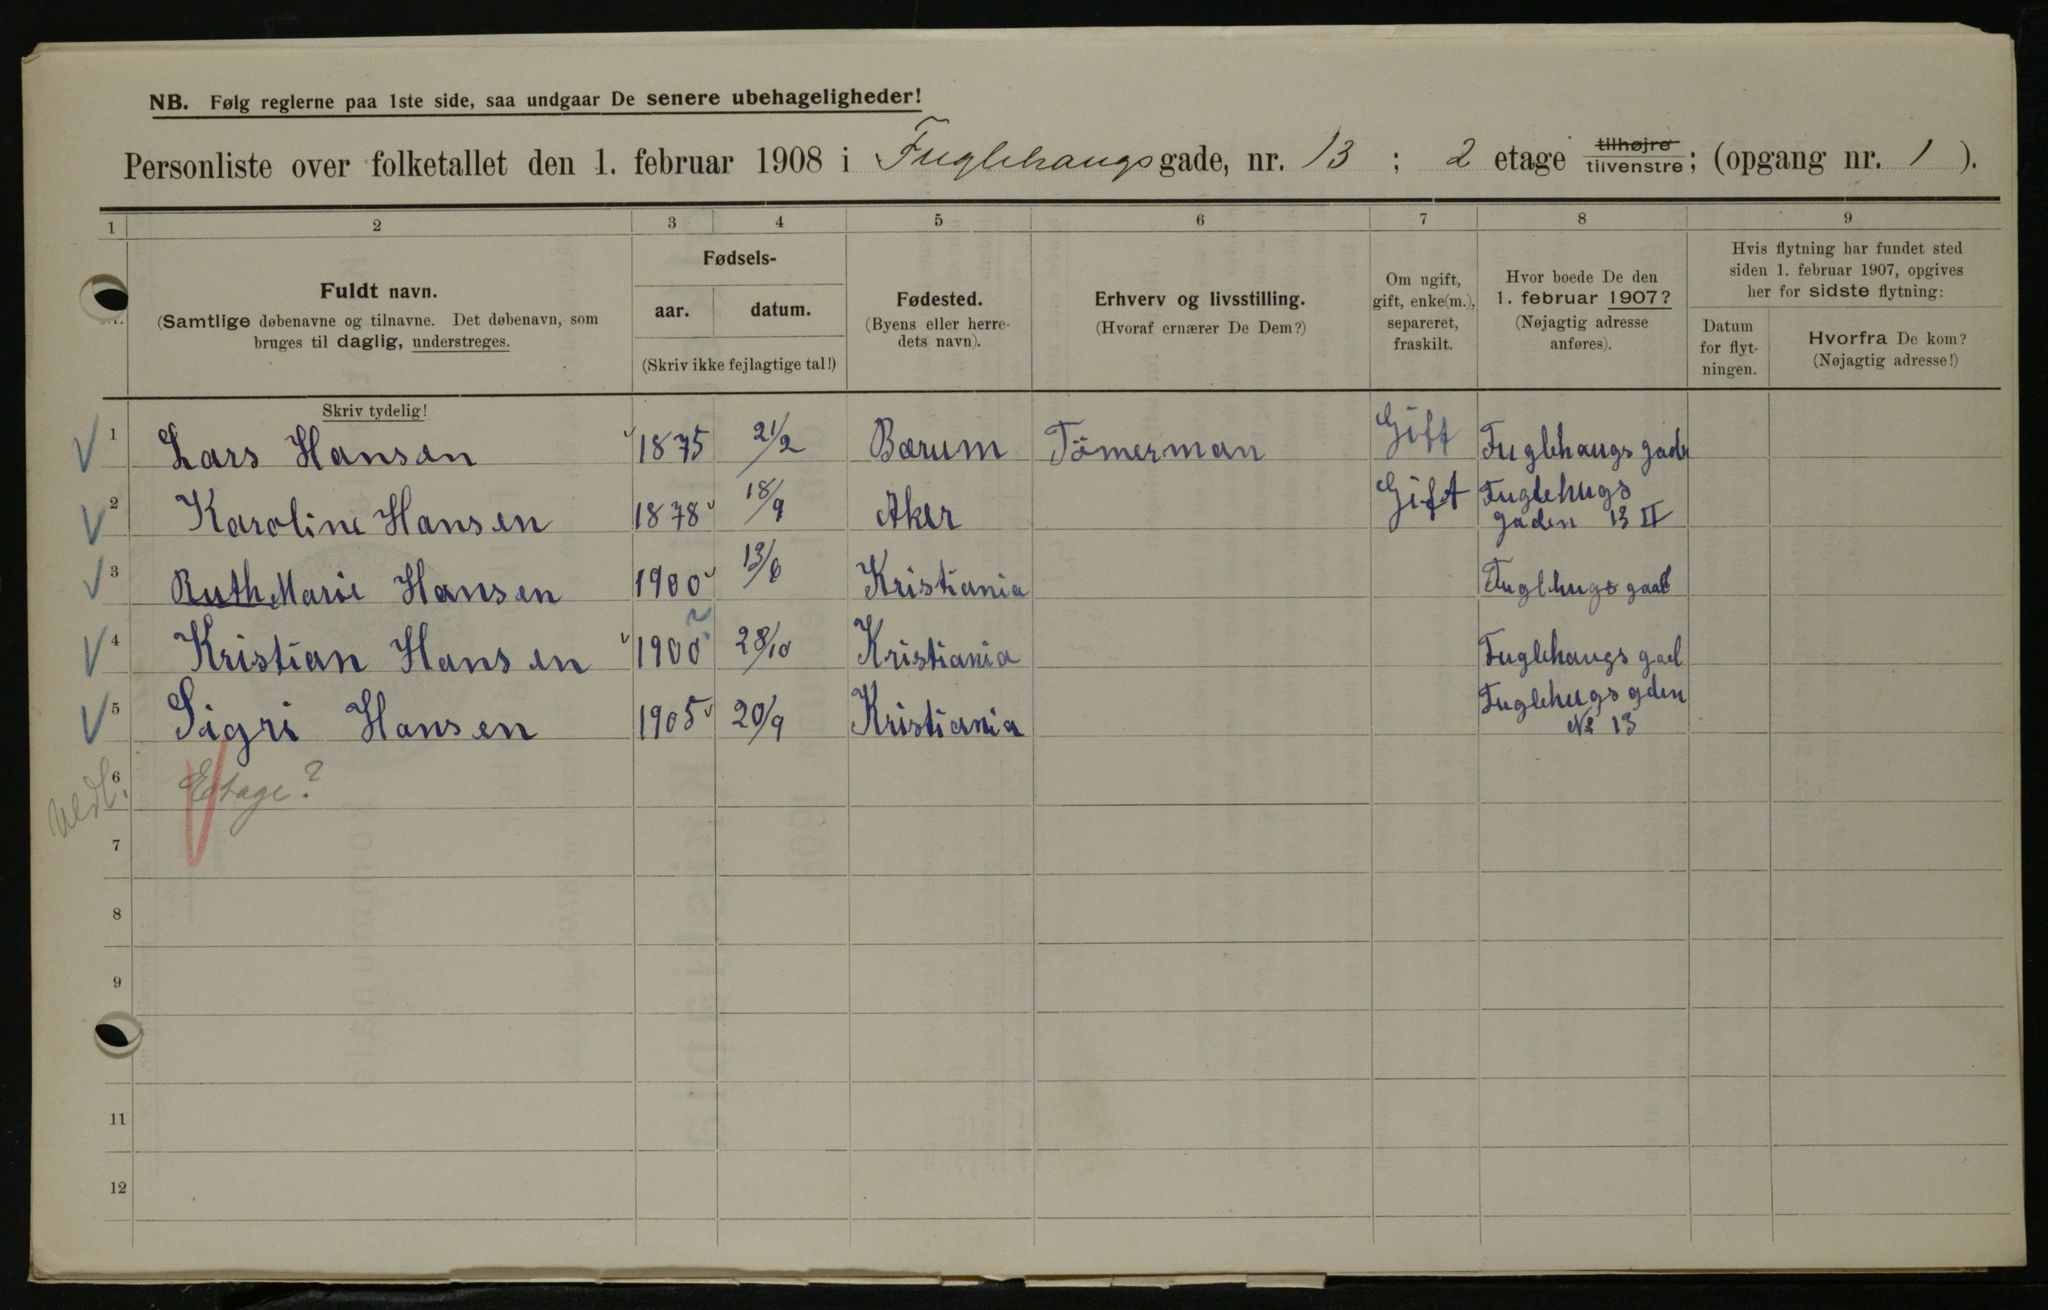 NB. Følg reglerne paa 1ste side, saa undgaar De senere ubehageligheder!
Personliste over folketallet den 1. februar 1908 i Fuglehaugsgade, nr. 13 ; 2 etage tilhøjre tilvenstre; (opgang nr. 1 ).
1 2 3 4 5 6 7 8 9
Fuldt navn.
(Samtlige døbenavne og tilnavne. Det døbenavn, som
bruges til daglig, understreges.
Skriv tydelig!
Fødsels-
aar. datum.
(Skriv ikke fejlagtige tal!)
Fødested.
(Byens eller herre-
dets navn).
Erhverv og livsstilling.
(Hvoraf ernærer De Dem?)
Om ugift,
gift, enke(m.),
separeret,
fraskilt.
Hvor boede De den
1. februar 1907?
(Nøjagtig adresse
anføres).
Hvis flytning har fundet sted
siden 1. februar 1907, opgives
her for sidste flytning:
Datum
for flyt-
ningen.
Hvorfra De kom?
(Nøjagtig adresse!)
1 Lars Hansen 1875 21/2 Bærum Tömerman Gift Fuglehaugs gade
2 Karoline Hansen 1878 18/9 Aker Gift Fuglehugs
gaden 13 II
3 Ruth Marie Hansen 1900 13/6 Kristiania Fuglehugs gad
4 Kristian Hansen 1900 ? 28/10 Kristiania Fuglehaugs gad
5 Sigri Hansen 1905 20/9 Kristiania Fuglehugs gden
No 13
6 Etage?
7
8
9
11
12